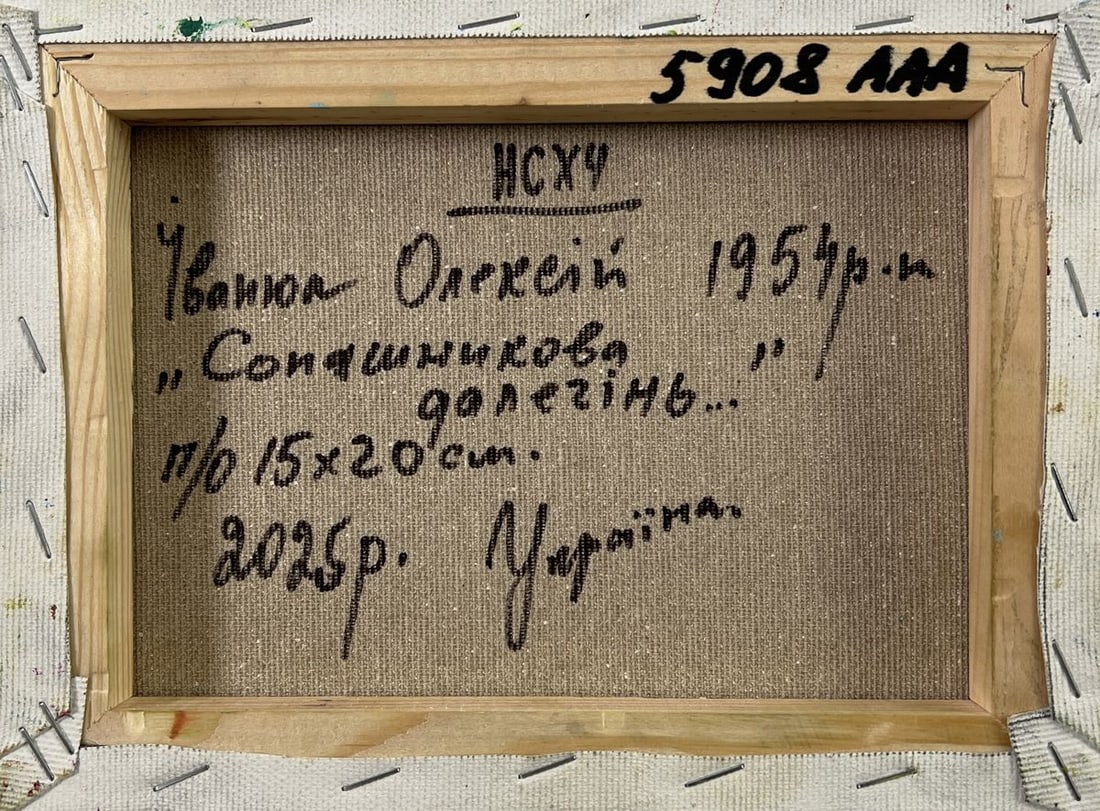 5908 AAA
НСХУ
Іванюк Олексій 1954р.н
„Соняшникова
далечінь..."
п/о 15х20 см.
2025р. Україна.